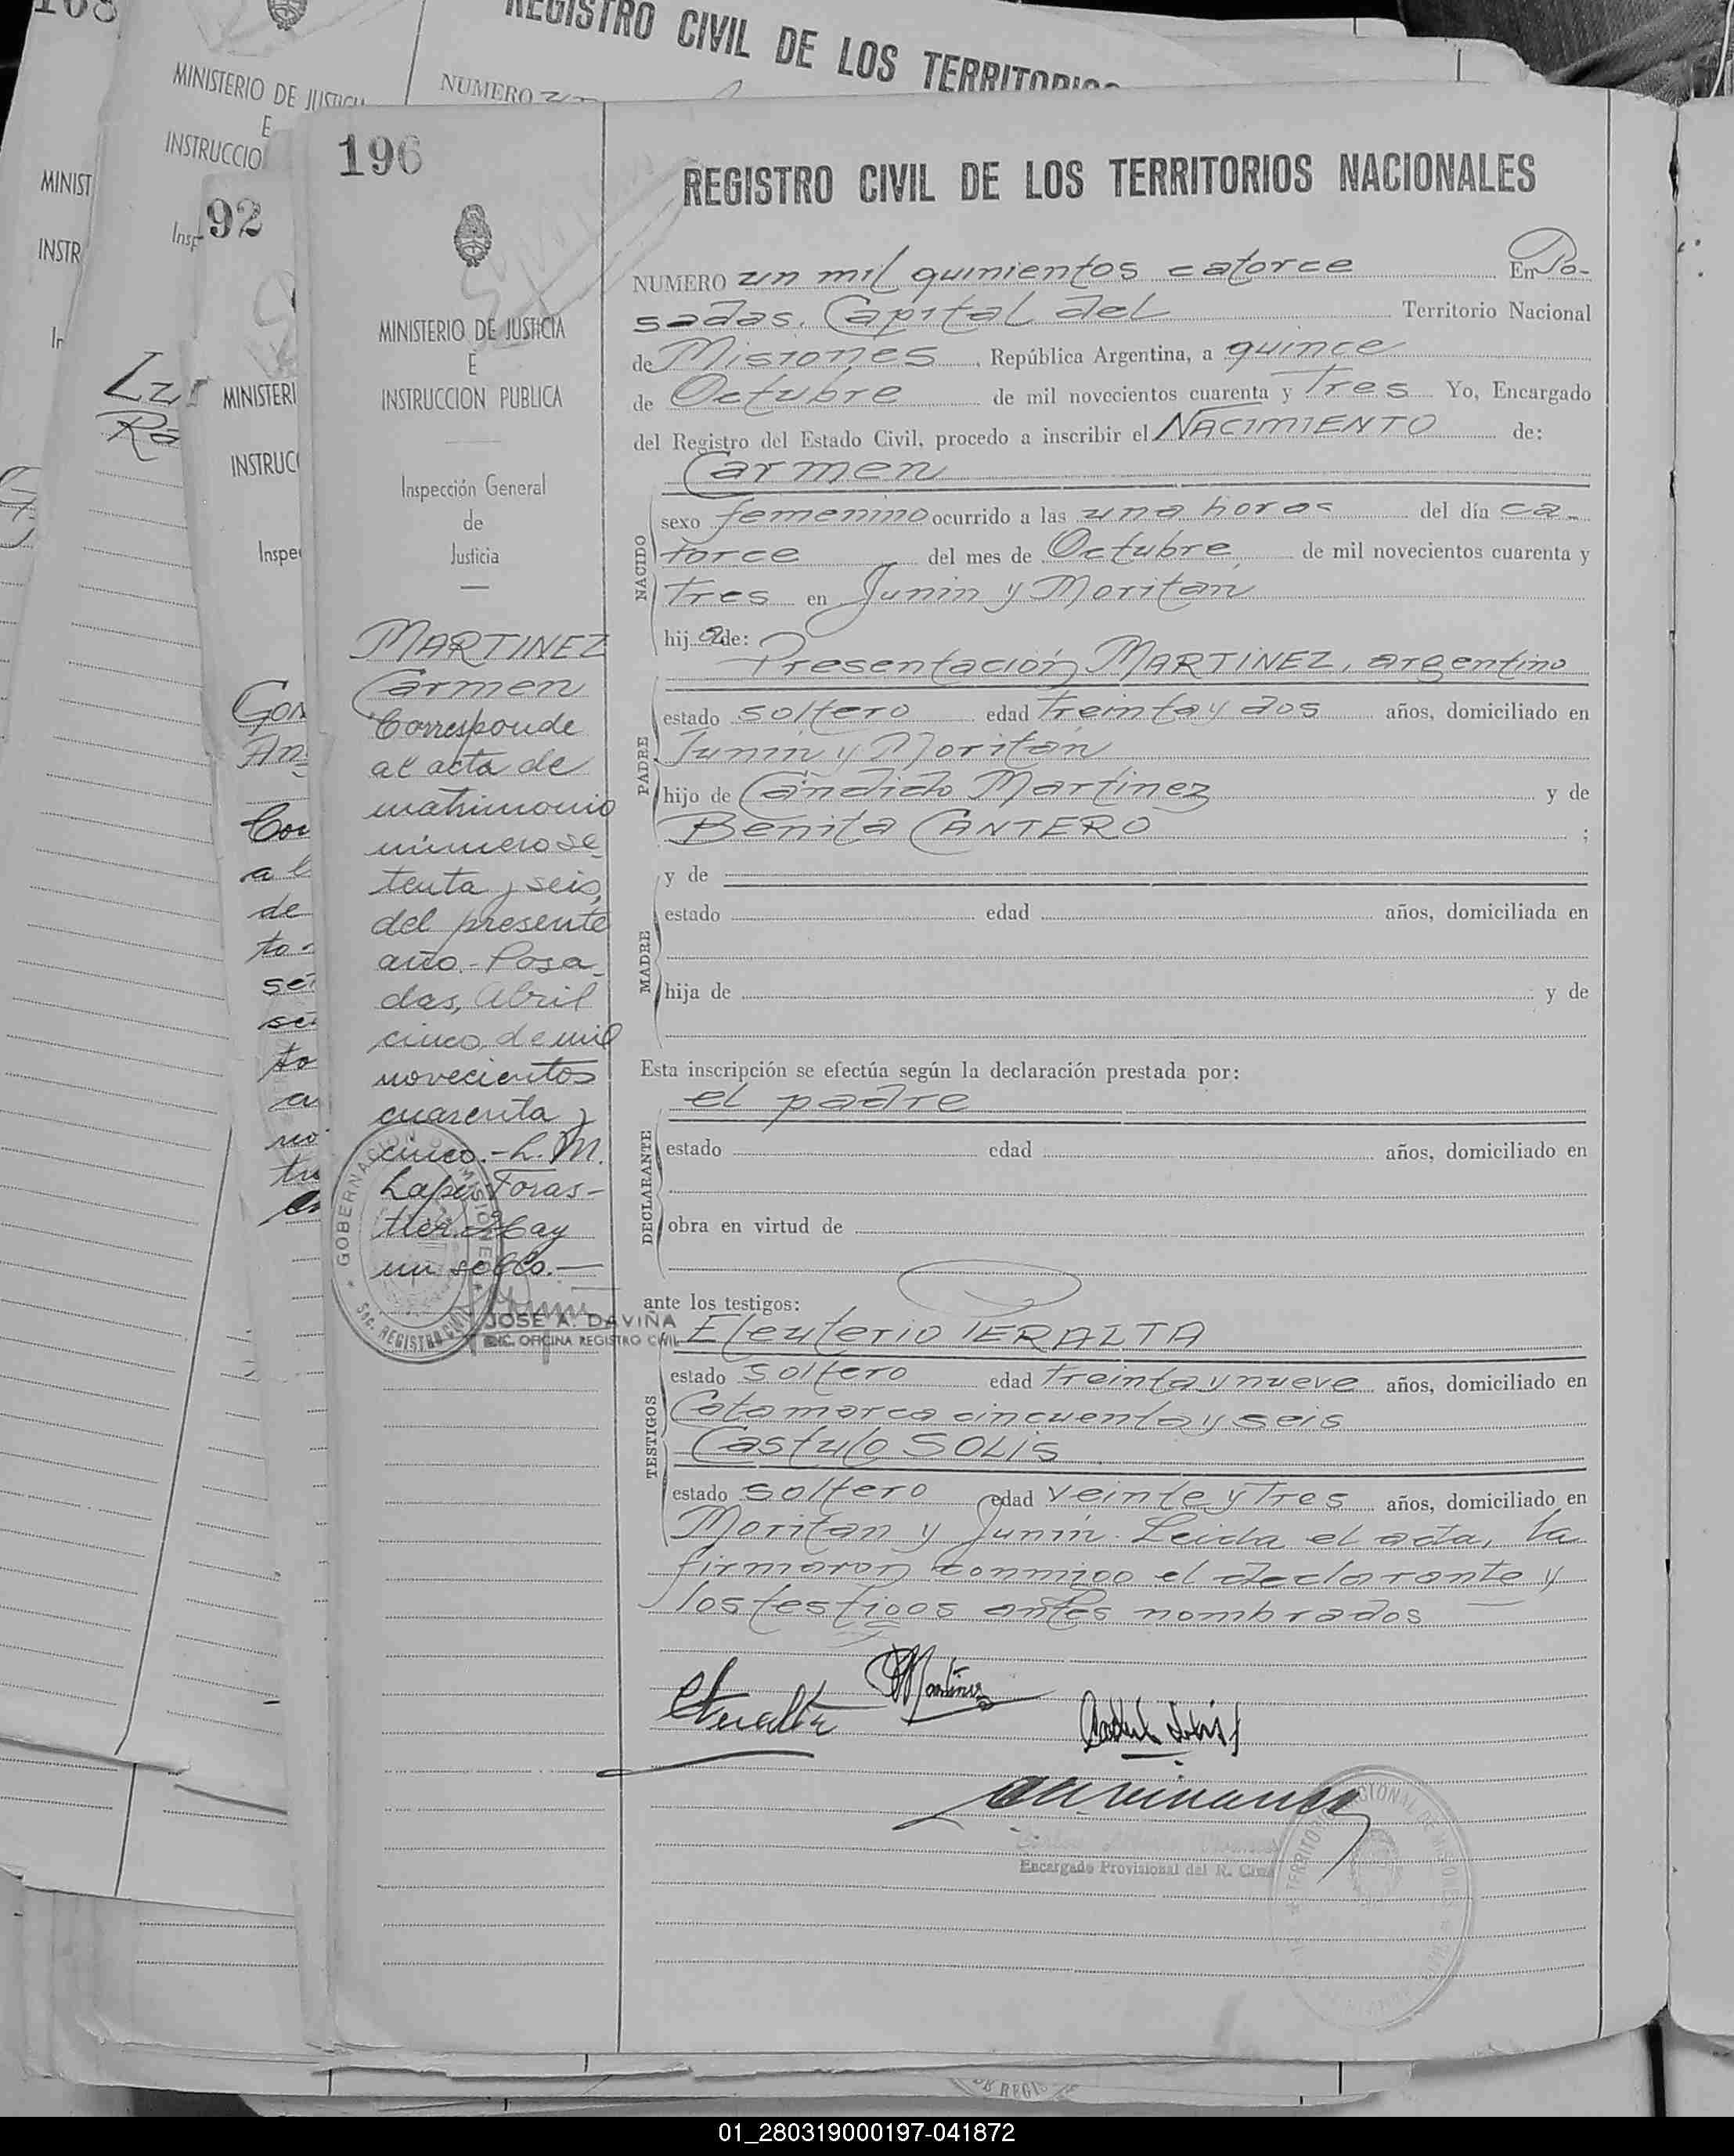 108
MINISTERIO DE JUSTICIA
E
INSTRUCCIO
REGISTRO CIVIL DE LOS TERRITORIOS
NUMERO
MINIST
INSTR
Insp
92
MINISTERI
INSTRUC
Inspe
196
MINISTERIO DE JUSTICIA
E
INSTRUCCION PUBLICA
Inspección General
de
Justicia
MARTINEZ
Carmen
Corresponde
al acta de
matrimonio
número se-
tenta y seis,
del presente
año.- Posa-
das, Abril
cinco de mil
novecientos
cuarenta y
cinco.- L. M.
Lapis Foras-
tier. Hay
un sello.—
GOBERNACION DE MISIONES
Sec. REGISTRO CIVIL
JOSE A. DAVIÑA
ENC. OFICINA REGISTRO CIVIL
REGISTRO CIVIL DE LOS TERRITORIOS NACIONALES
NUMERO un mil quinientos catorce En Po-
sadas, Capital del Territorio Nacional
de Misiones, República Argentina, a quince
de Octubre de mil novecientos cuarenta y Tres Yo, Encargado
del Registro del Estado Civil, procedo a inscribir el NACIMIENTO de:
Carmen
NACIDO
sexo femenino ocurrido a las una horas del día ca-
torce del mes de Octubre de mil novecientos cuarenta y
tres en Junin y Moritan
hij a de:
PADRE
Presentación MARTINEZ, argentino
estado soltero edad Treinta y dos años, domiciliado en
Junin y Moritán
hijo de Cándido Martinez y de
Benita CANTERO ;
MADRE
y de
estado edad años, domiciliada en
hija de y de
Esta inscripción se efectúa según la declaración prestada por:
el padre
DECLARANTE
estado edad años, domiciliado en
obra en virtud de
ante los testigos:
TESTIGOS
Eleuterio PERALTA
estado soltero edad Treinta y nueve años, domiciliado en
Catamarca cincuenta y seis
Castulo SOLIS
estado soltero edad veinte y Tres años, domiciliado en
Moritan y Junin. Leida el acta, la
firmaron conmigo el declarante y
los testigos antes nombrados
EPeralta
PMartinez
Castulo Solis
Encargado Provisional del R. Civil
TERRITORIO NACIONAL DE MISIONES
01_280319000197-041872